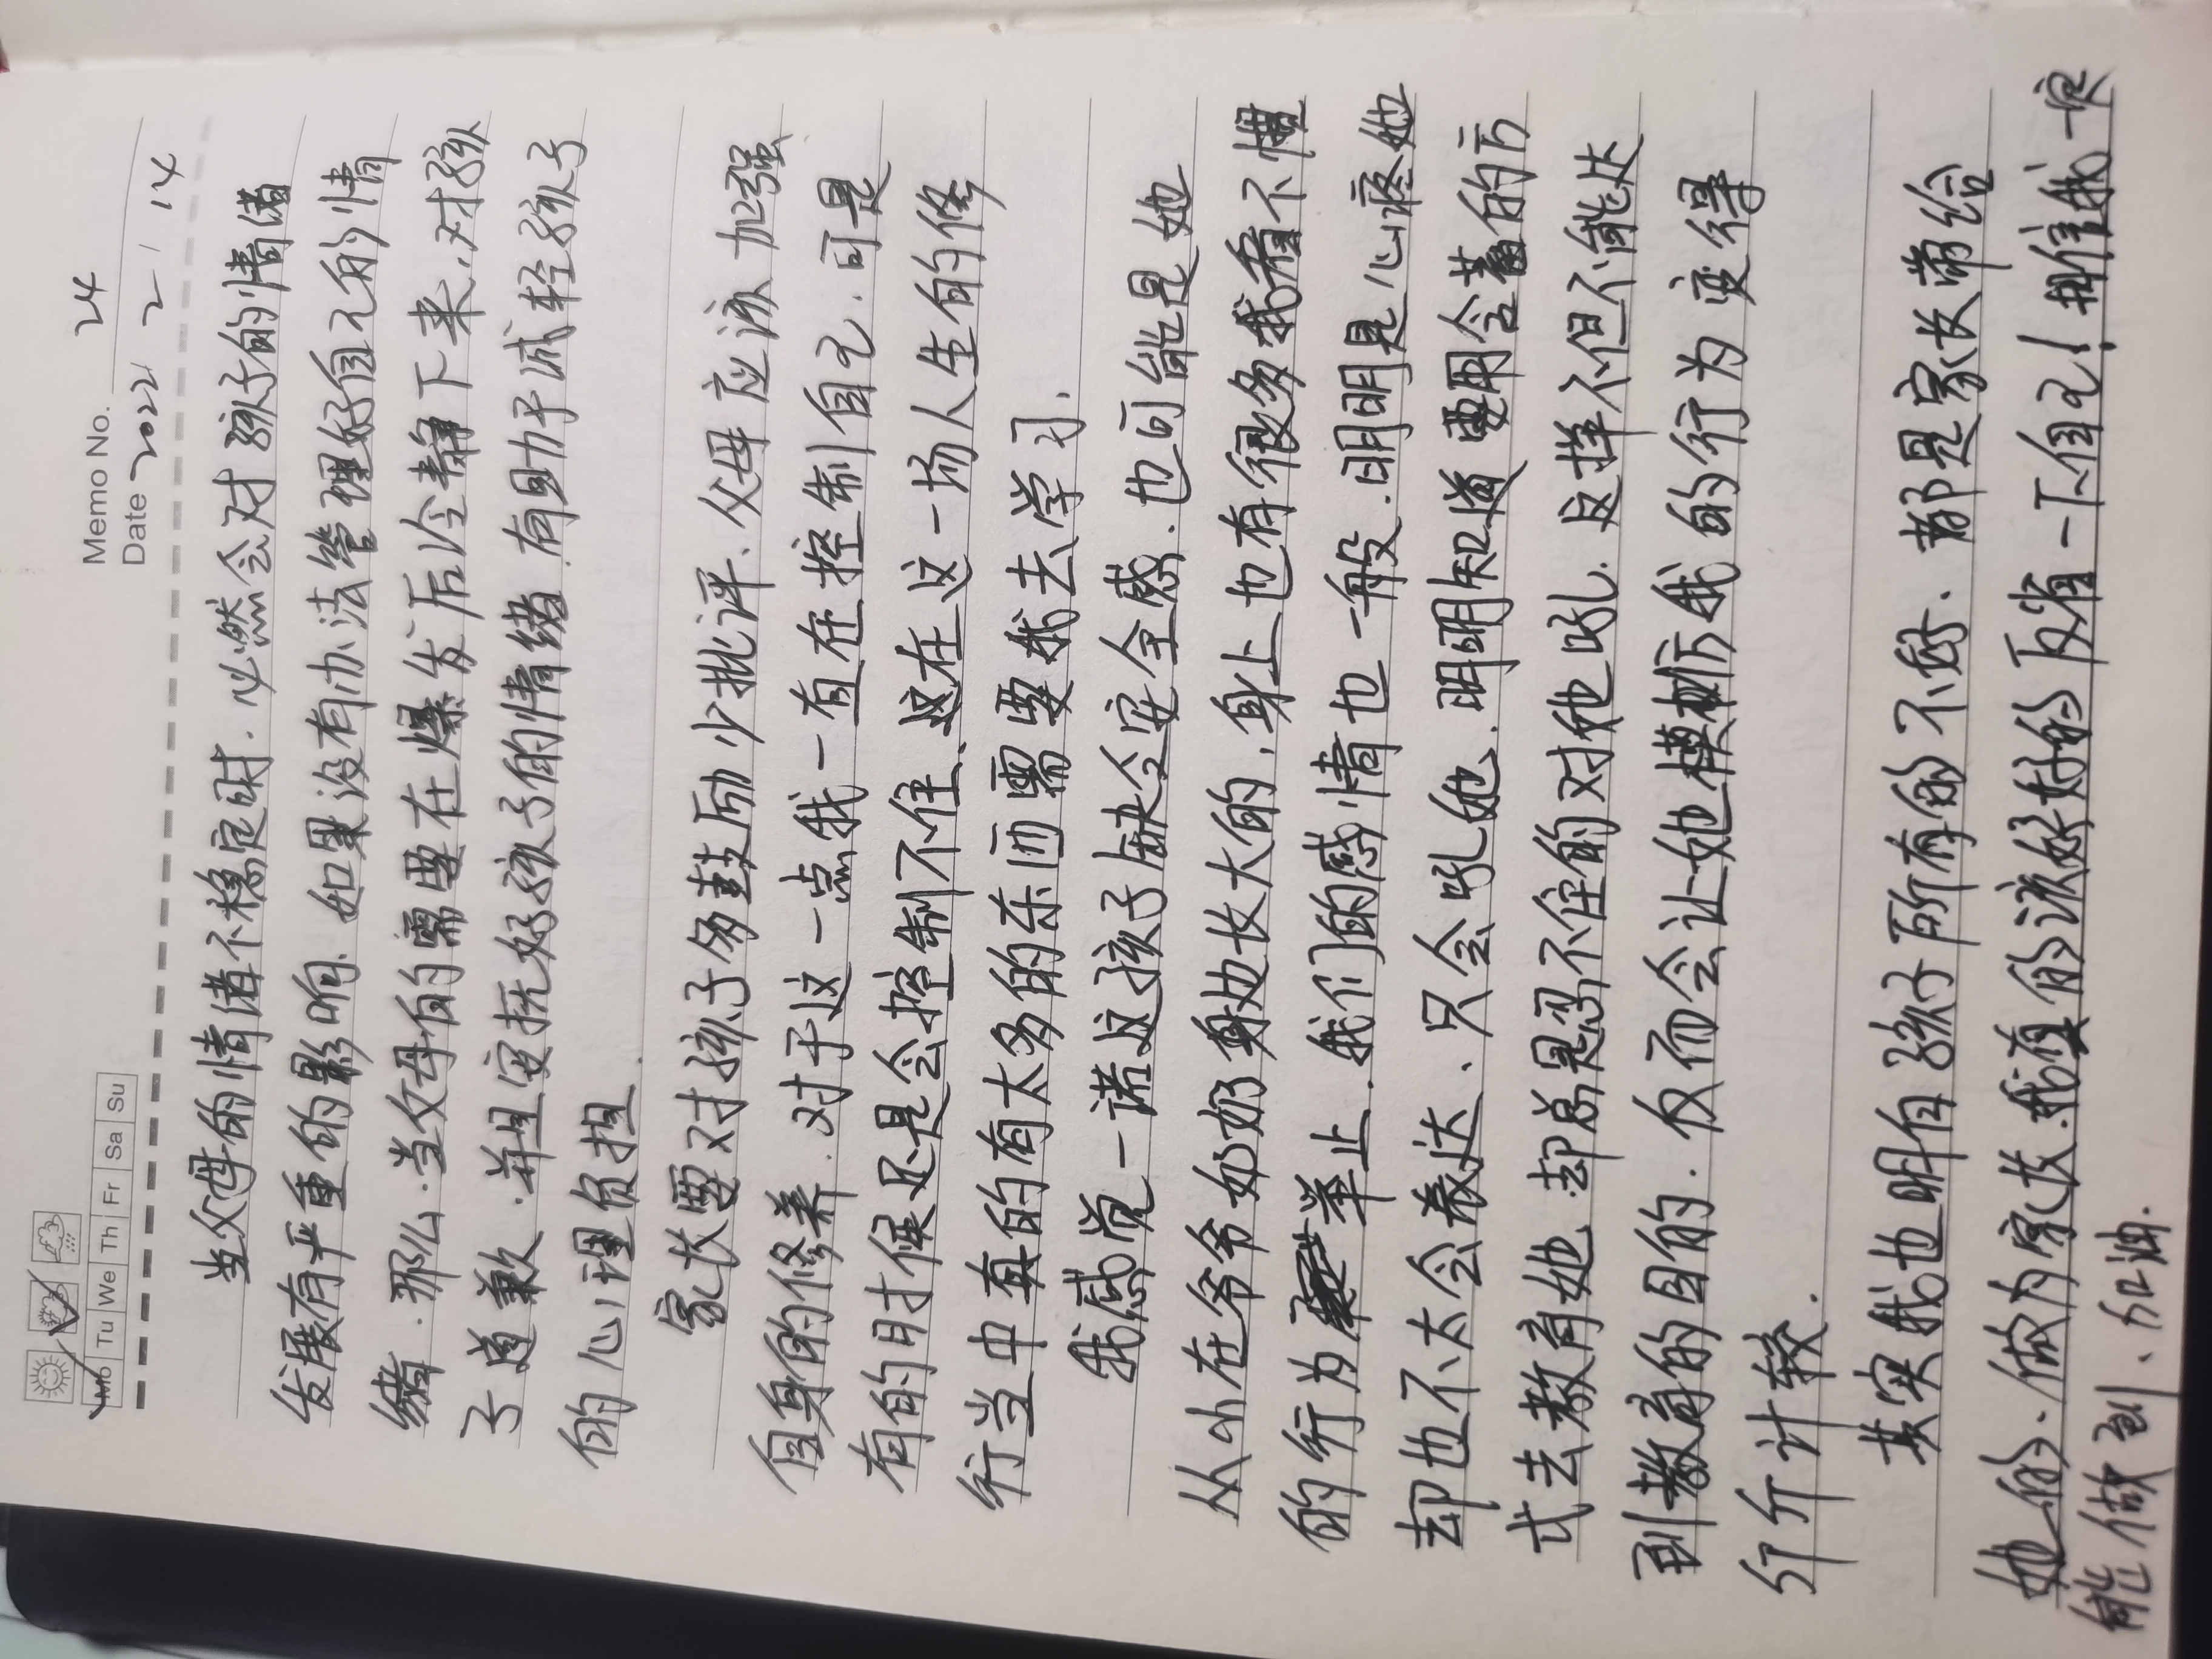 Memo No. 24
Mo Tu We Th Fr Sa Su
Date 2022 2 14
当父母的情绪不稳定时.必然会对孩子的情绪
发展有严重的影响.如果没有办法管理好自己的情
绪.那么.当父母的需要在爆发后冷静下来,对孩
子道歉.并且安抚好孩子的情绪.有助于减轻孩子
的心理负担.
家长要对孩子多鼓励少批评.父母应该加强
自身的修养.对于这一点我一直在控制自己.可是
有的时候还是会控制不住、这在这一场人生的修
行当中真的有太多的东西需要我去学习.
我感觉一诺这孩子缺乏安全感.也可能是她
从小在爷爷奶奶身边长大的,身上也有很多我看不惯
的行为举止.我们的感情也一般.明明是心疼她
却也不太会表达、只会吼她.明明知道要用含蓄的方
式去教育她.却总是忍不住的对他吼.这样不但不能达
到教育的目的.反而会让她模仿我的行为变得
斤斤计较.
其实我也明白孩子所有的不好、都是家长带给
她的、做为家长.我真的该好好的反省一下自己!相信我一定
能做到、加油.